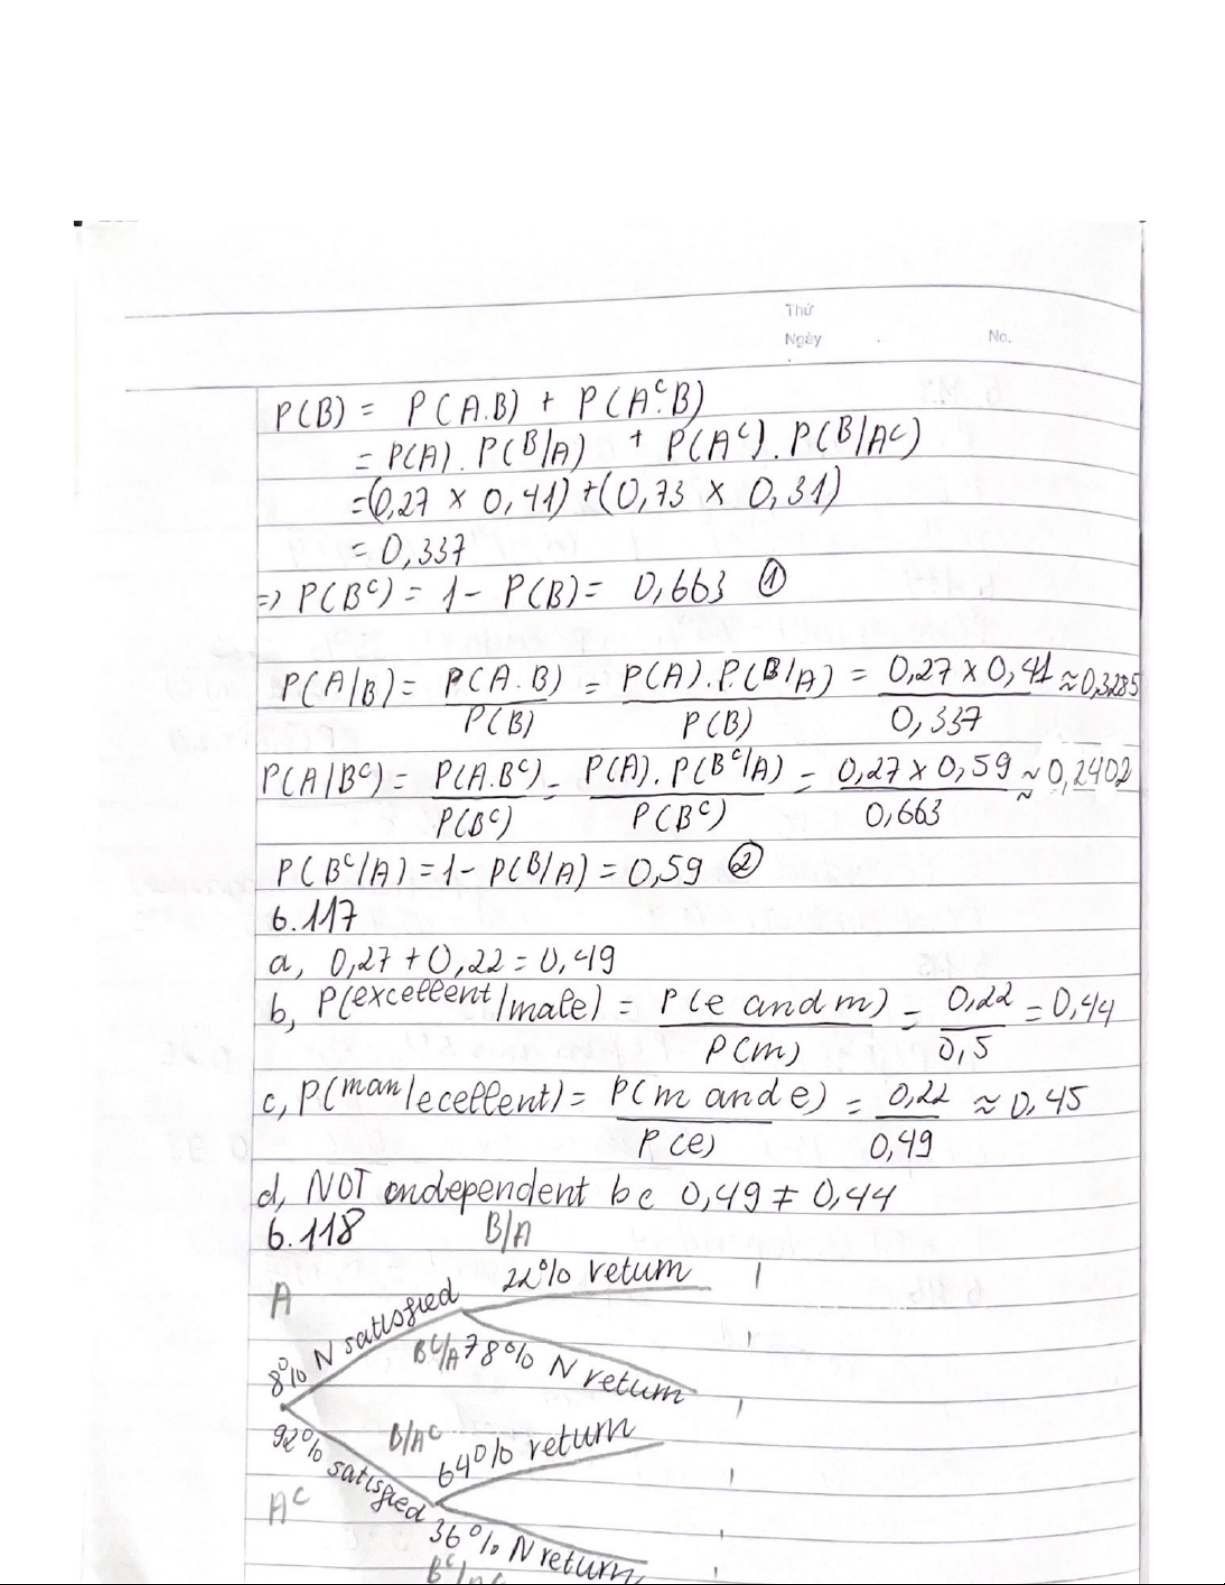 Thứ
Ngày No.
P(B) = P(A.B) + P(Aᶜ.B)
= P(A). P(B/A) + P(Aᶜ). P(B/Aᶜ)
=(0,27 × 0,41)+(0,73 × 0,31)
= 0,337
=> P(Bᶜ) = 1 - P(B) = 0,663 ①
P(A/B) = P(A.B)/P(B) = P(A).P.(B/A)/P(B) = 0,27 × 0,41/0,337 ≈ 0,3285
P(A/Bᶜ) = P(A.Bᶜ)/P(Bᶜ) = P(A). P(Bᶜ/A)/P(Bᶜ) = 0,27 × 0,59/0,663 ≈ 0,2402
P(Bᶜ/A) = 1 - P(B/A) = 0,59 ②
6.117
a, 0,27 + 0,22 = 0,49
b, P(excellent/male) = P(e and m)/P(m) = 0,22/0,5 = 0,44
c, P(man/ecellent) = P(m and e)/P(e) = 0,22/0,49 ≈ 0,45
d, NOT independent bc 0,49 ≠ 0,44
6.118 B/A
A 8% N satisfied 22% return
Bᶜ/A 78% N return
92% satisfied B/Aᶜ 64% return
Aᶜ 36% N return